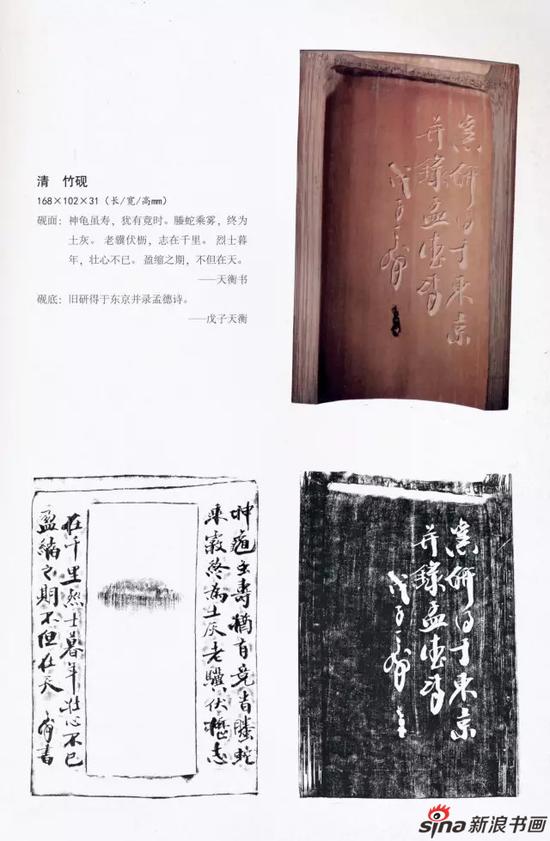 清 竹砚
168×102×31（长/宽/高mm）
砚面：神龟虽寿，犹有竞时。螣蛇乘雾，终为
土灰。老骥伏枥，志在千里。烈士暮
年，壮心不已。盈缩之期，不但在天。
——天衡书
砚底：旧研得于东京并录孟德诗。
——戊子天衡
舊研得于東京
并錄孟德詩
戊子天衡
神龜虽壽猶有竞时螣蛇
乘霧終為土灰老驥伏櫪志
在千里烈士暮年壮心不已
盈縮之期不但在天 衡書
舊研得于東京
并錄孟德詩
戊子天衡
sina新浪书画